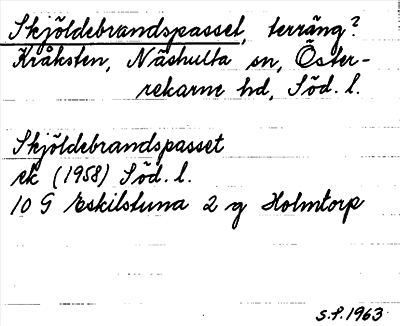 Skjöldebrandspasset, terräng?
Kråksten, Näshulta sn, Öster-
rekarne hd, Söd. l.
Skjöldebrandspasset
ek (1958) Söd. l.
10 G Eskilstuna 2 g Holmtorp
S.P. 1963